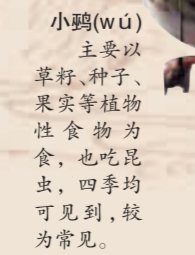 小鹀(wú)
主要以
草籽、种子、
果实等植物
性食物为
食，也吃昆
虫，四季均
可见到，较
为常见。